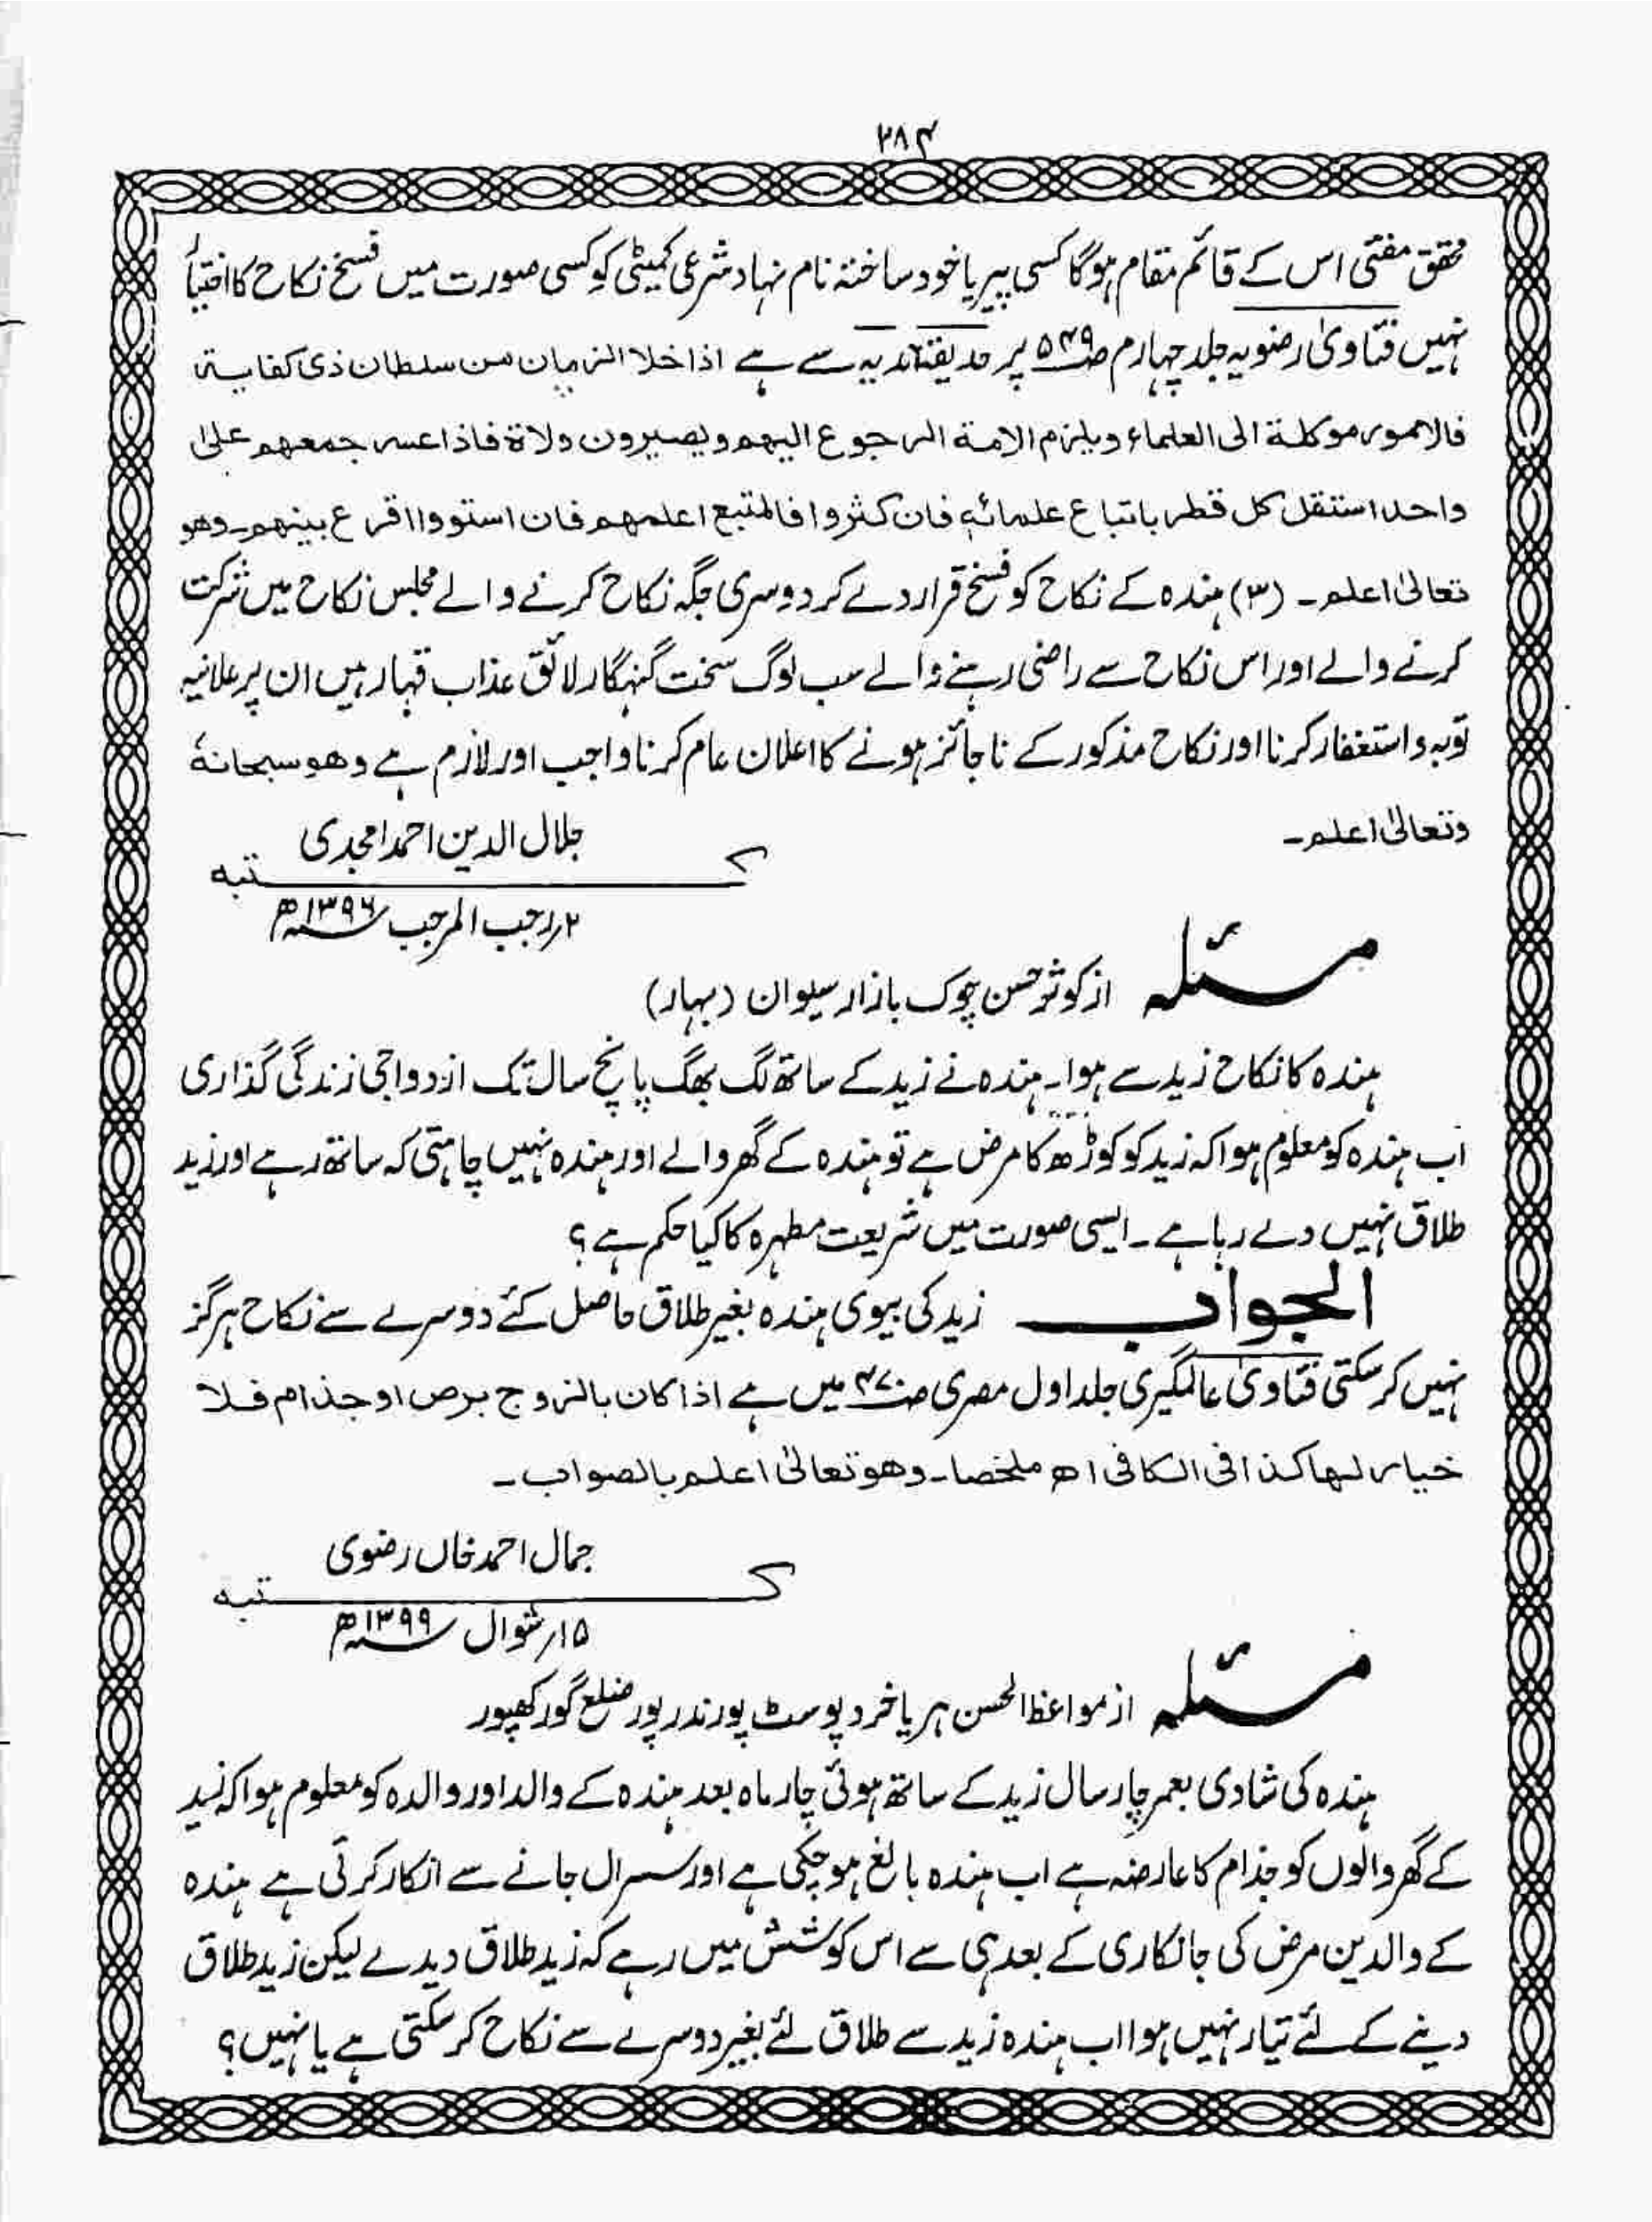 ۲۸۴
محقق مفتی اس کے قائم مقام ہوگا کسی پیر یا خود ساختہ نام نہاد شرعی کمیٹی کو کسی صورت میں فسخ نکاح کا اختیار
نہیں فتاویٰ رضویہ جلد چہارم ص۵۴۹ پر حدیقۃ ندیہ سے ہے اذا خلا الزمان من سلطان ذی کفایۃ
فالامور موکلۃ الی العلماء ویلزم الامۃ الرجوع الیھم ویصیرون ولاۃ فاذا عسر جمعھم علیٰ
واحد استقل کل قطر باتباع علمائہٖ فان کثروا فالمتبع اعلمھم فان استووا اقرع بینھم۔ وھو
تعالیٰ اعلم۔ (۳) ہندہ کے نکاح کو فسخ قرار دے کر دوسری جگہ نکاح کرنے والے مجلس نکاح میں شرکت
کرنے والے اور اس نکاح سے راضی رہنے والے سب لوگ سخت گنہگار لائق عذاب قہار ہیں ان پر علانیہ
توبہ و استغفار کرنا اور نکاح مذکور کے ناجائز ہونے کا اعلان عام کرنا واجب اور لازم ہے وھو سبحانہٗ
وتعالیٰ اعلم۔
جلال الدین احمد امجدی
کتبہ
۲؍ رجب المرجب ۱۳۹۶ھ
مسئلہ از کوثر حسن چوک بازار سیوان (بہار)
ہندہ کا نکاح زید سے ہوا۔ ہندہ نے زید کے ساتھ لگ بھگ پانچ سال تک ازدواجی زندگی گذاری
اب ہندہ کو معلوم ہوا کہ زید کو کوڑھ کا مرض ہے تو ہندہ کے گھر والے اور ہندہ نہیں چاہتی کہ ساتھ رہے اور زید
طلاق نہیں دے رہا ہے۔ ایسی صورت میں شریعت مطہرہ کا کیا حکم ہے؟
الجواب زید کی بیوی ہندہ بغیر طلاق حاصل کئے دوسرے سے نکاح ہرگز
نہیں کر سکتی فتاویٰ عالمگیری جلد اول مصری ص۴۷۰ میں ہے اذا کان بالزوج برص او جذام فلا
خیار لھا کذا فی الکافی اھ ملخصا۔ وھو تعالیٰ اعلم بالصواب۔
جمال احمد خاں رضوی
کتبہ
۱۵؍ شوال ۱۳۹۹ھ
مسئلہ از مواعظ الحسن ہریا خرد پوسٹ پورندر پور ضلع گورکھپور
ہندہ کی شادی بعمر چار سال زید کے ساتھ ہوئی چار ماہ بعد ہندہ کے والد اور والدہ کو معلوم ہوا کہ زید
کے گھر والوں کو جذام کا عارضہ ہے اب ہندہ بالغ ہو چکی ہے اور سسرال جانے سے انکار کرتی ہے ہندہ
کے والدین مرض کی جانکاری کے بعد ہی سے اس کوشش میں رہے کہ زید طلاق دیدے لیکن زید طلاق
دینے کے لئے تیار نہیں ہوا اب ہندہ زید سے طلاق لئے بغیر دوسرے سے نکاح کر سکتی ہے یا نہیں؟